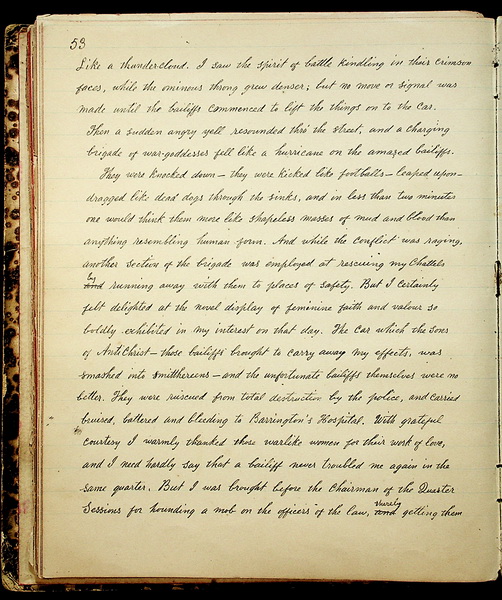 53
Like a thundercloud. I saw the spirit of battle kindling in their crimson
faces, while the ominous throng grew denser; but no move or signal was
made until the bailiffs commenced to left the things on to the car.
Then a sudden angry yell resounded thro the street, and a charging
brigade of war-goddesses fell like a hurricane on the amazed bailiffs.
They were knocked down – they were kicked like footballs – leaped upon –
dragged like dead dogs through the sinks, and in less than two minutes
one would think them more like shapeless masses of mud and blood than
anything resembling human form. And while the conflict was raging,
another section of the brigade was employed at rescuing my Chattels
by
and running away with them to places of safety. But I certainly
felt delighted at the novel display of feminine faith and valour so
boldly exhibited in my interest on that day. The car which the sons
of AntiChrist – those bailiffs brought to carry away my effects, was
smashed into smitthereens – and the unfortunate bailiffs themselves were no
better. They were rescued from total destruction by the police, and carried
bruised, battered and bleeding to Barrington's Hospital. With grateful
courtesy I warmly thanked those warlike women for their work of love,
and I need hardly say that a bailiff never troubled me again in the
same quarter. But I was brought before the Chairman of the Quarter
thereby
Sessions for hounding a mob on the officers of the law, and getting them